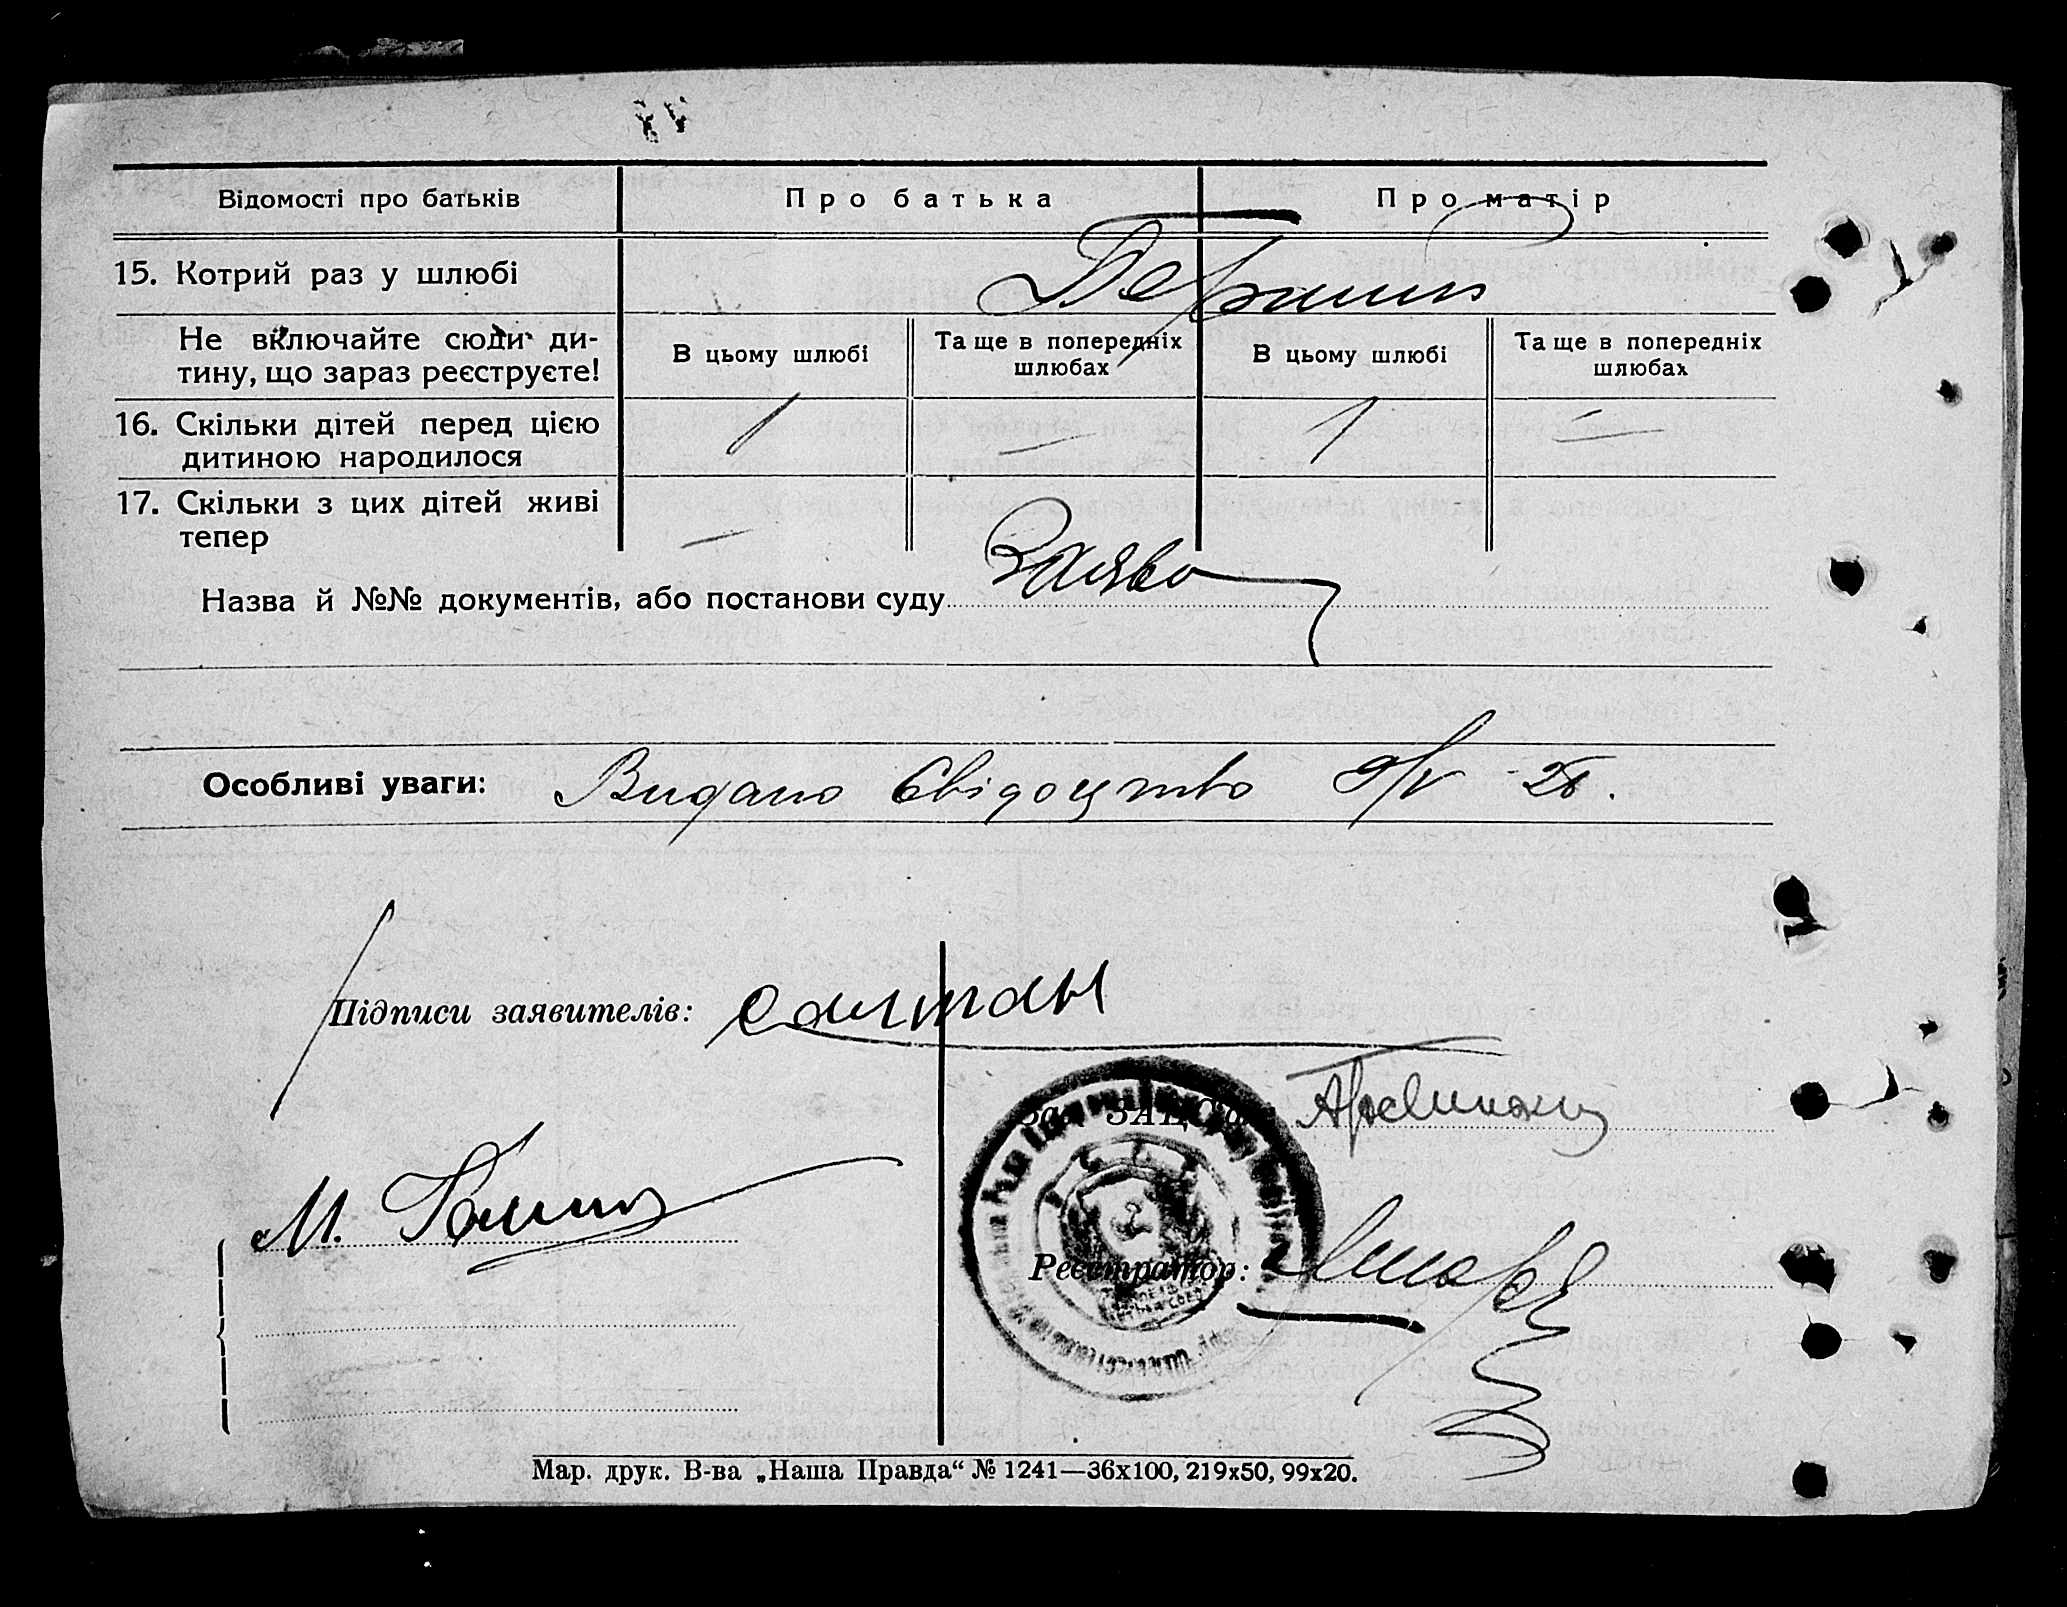 Відомості про батьків Про батька Про матір
15. Котрий раз у шлюбі
Не включайте сюди ди-
тину, що зараз реєструєте!
В цьому шлюбі
Та ще в попередніх
шлюбах
В цьому шлюбі
Та ще в попередніх
шлюбах
16. Скільки дітей перед цією
дитиною народилося
1 — 1 —
17. Скільки з цих дітей живі
тепер
—
Назва й №№ документів, або постанови суду Заява
Особливі уваги: Видано Свідоцтво 9/V
Підписи заявителів:
Зав. ЗАЦСа
М.
Реєстратор:
Мар. друк. В-ва „Наша Правда“ № 1241—36х100, 219х50, 99х20.